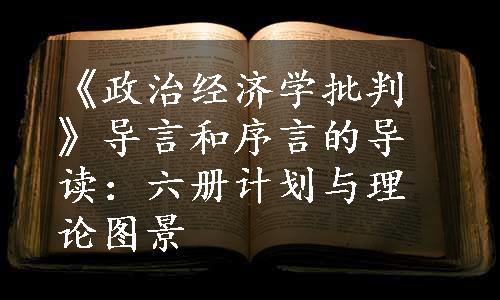 《政治经济学批判
》导言和序言的导
读：六册计划与理
论图景